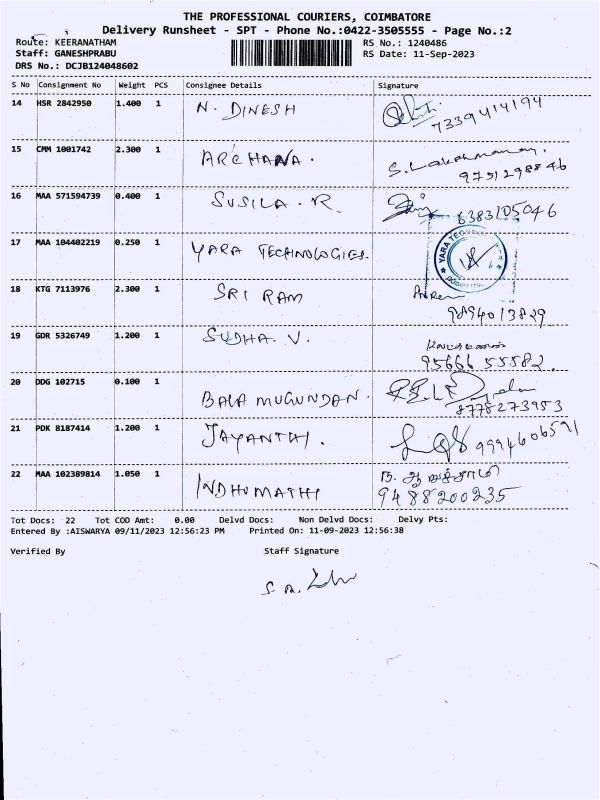 THE PROFESSIONAL COURIERS, COIMBATORE
Delivery Runsheet - SPT - Phone No.:0422-3505555 - Page No.:2
Route: KEERANATHAM RS No.: 1240486
Staff: GANESHPRABU RS Date: 11-Sep-2023
DRS No.: DCJB124048602
S No Consignment No Weight PCS Consignee Details Signature
14 HSR 2842950 1.400 1 N. DINESH 7339414194
15 CMM 1001742 2.300 1 ARCHANA. S. Lakshmanan. 9751298846
16 MAA 571594739 0.400 1 SUSILA. R. 6383105046
17 MAA 104402219 0.250 1 YARA TECHNOLOGIES. YARA
18 KTG 7113976 2.300 1 SRI RAM 9894013829
19 GDR 5326749 1.200 1 SUDHA. V. 95666 55582.
20 DDG 102715 0.100 1 BALA MUGUNDAN. 8778273953
21 PDK 8187414 1.200 1 JAYANTHI. 9994606591
22 MAA 102389814 1.050 1 INDHUMATHI 9488200235
Tot Docs: 22 Tot COD Amt: 0.00 Delvd Docs: Non Delvd Docs: Delvy Pts:
Entered By :AISWARYA 09/11/2023 12:56:23 PM Printed On: 11-09-2023 12:56:38
Verified By Staff Signature